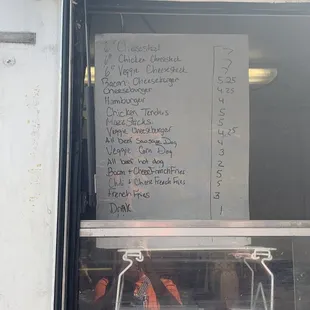 6" Cheesesteak 7
6" Chicken Cheesesteak 7
6" Veggie Cheesesteak 7
Bacon Cheeseburger 5.25
Cheeseburger 4.25
Hamburger 4
Chicken Tenders 5
Mozz Sticks 5
Veggie Cheeseburger 4.25
All beef Sausage Dog 4
Veggie Corn Dog 3
All beef hot dog 2
Bacon + Cheese French Fries 5
Chili + Cheese French Fries 5
French Fries 3
Drink 1